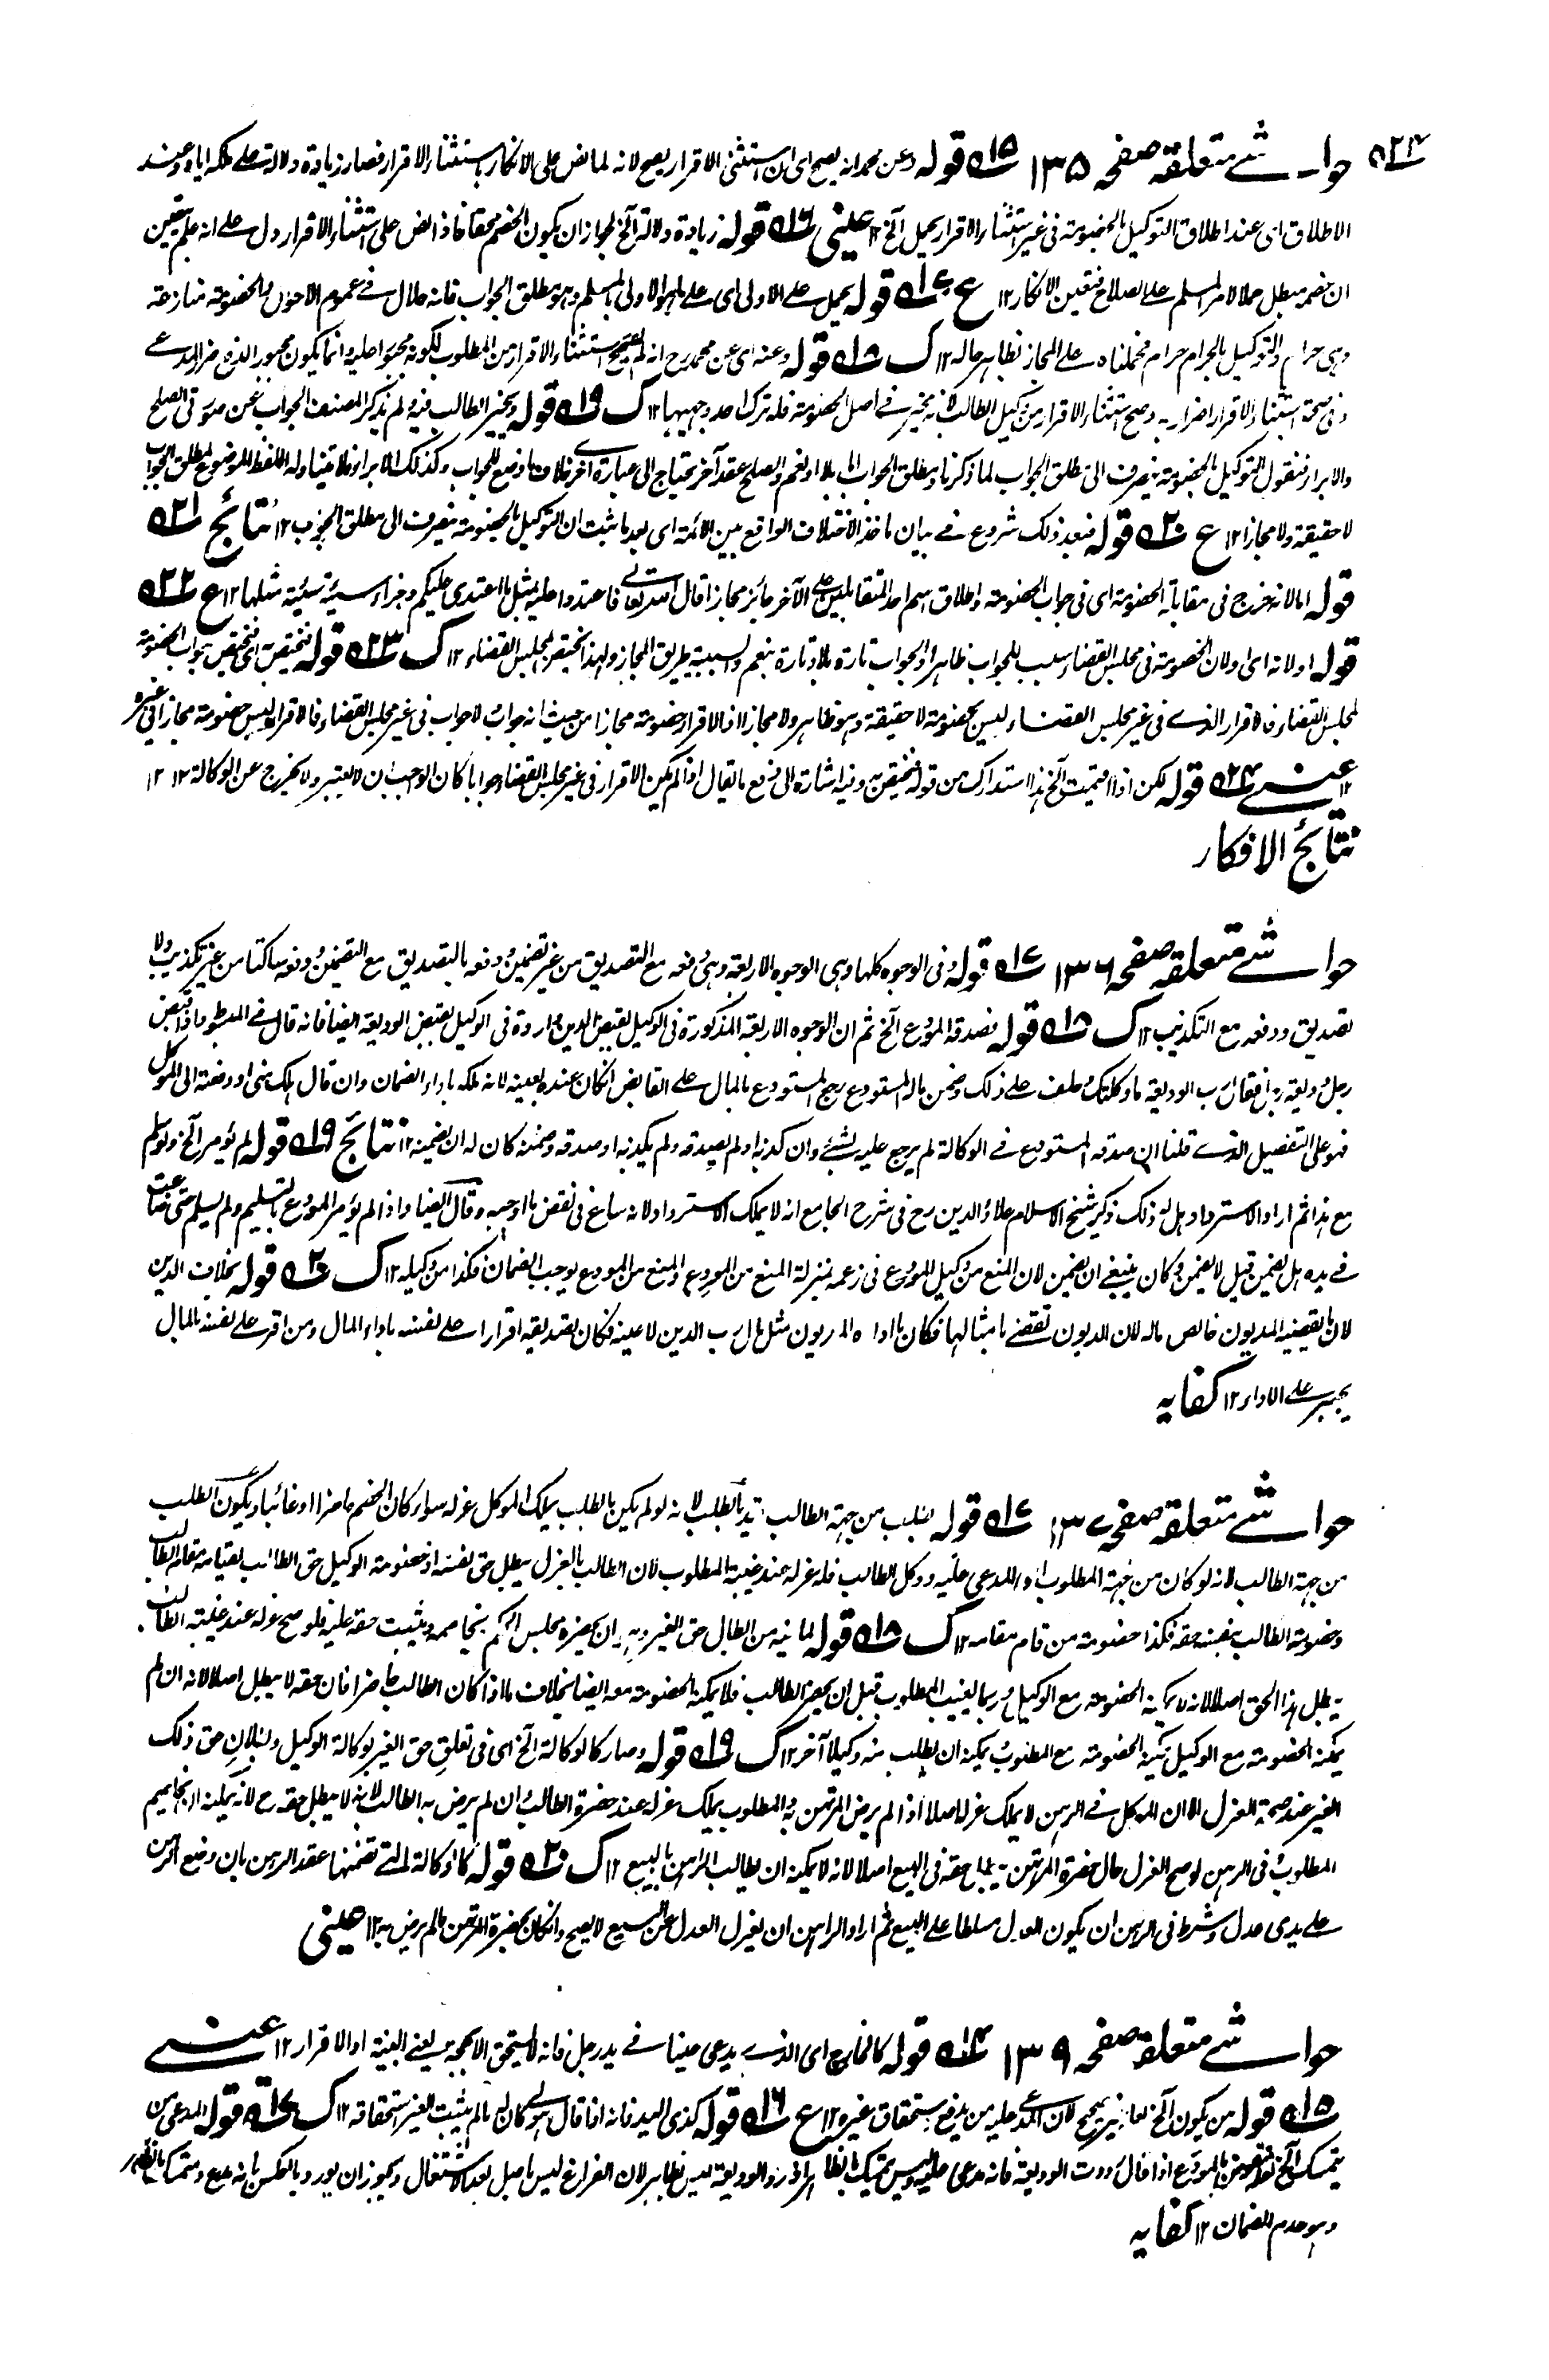 ۵۲۴ حواشے متعلقہ صفحہ ۱۳۵ ۱۵ قولہ وعن محمد انہ یصح ای ان استثنی الاقرار یصح لانہ لما نص علی الانکار باستثناء الاقرار فصار زیادۃ دلالۃ علی ملکہ ایاہ وعند
الاطلاق ای عند اطلاق التوکیل بالخصومۃ فی غیر استثناء الاقرار یحمل الخ ۱۲ عینی ۱۶ قولہ زیادۃ دلالۃ الخ لجواز ان یکون الخصم محقا فاذا نص علی استثناء الاقرار دل علے انہ علم بیقین
ان خصمہ مبطل حملا لامر المسلم علے الصلاح فتعین الانکار ۱۲ ع ۱۷ قولہ یحمل علے الاولی ای علے ما ہو الاولی بالمسلم وہو مطلق الجواب فانہ حلال فے عموم الاحوال والخصومۃ منازعۃ
وہی حرام والتوکیل بالحرام حرام فحملناہ علے المجاز بظاہر حالہ ۱۲ ک ۱۸ قولہ وعنہ ای عن محمد رح انہ لم یصح استثناء الاقرار من المطلوب لکونہ مجبورا علیہ وانما یکون مجبورا لدفع ضرر المدعے
وفی صحۃ استثناء الاقرار اضرار بہ وصح استثناء الاقرار من وکیل الطالب لانہ مخیر فے اصل الخصومۃ فلہ ترک احد وجہیہا ۱۲ ک ۱۹ قولہ ویخیر الطالب فیہ ولم یذکر المصنف الجواب عن صورتی الصلح
والابراء فنقول التوکیل بالخصومۃ ینصرف الی مطلق الجواب لما ذکرنا ومطلق الجواب اما بلا او نعم والصلح عقد آخر یحتاج الی عبارۃ اخری خلاف ما وضع للجواب وکذلک الابراء فلا یتناولہ اللفظ الموضوع لمطلق الجواب
لا حقیقۃ ولا مجازا ۱۲ ع ۲۰ قولہ فبعد ذلک شروع فے بیان ماخذ الاختلاف الواقع بین الائمۃ ای بعد ما ثبت ان التوکیل بالخصومۃ ینصرف الی مطلق الجواب ۱۲ نتائج ۲۱
قولہ اما لانہ خرج فی مقابلۃ الخصومۃ ای فی جواب الخصومۃ واطلاق اسم احد المتقابلین علی الآخر جائز مجازا قال اللہ تعالی فاعتدوا علیہ بمثل ما اعتدی علیکم وجزاء سیئۃ سیئۃ مثلہا ۱۲ ع ۲۲
قولہ او لانہ ای او لان الخصومۃ فی مجلس القضاء سبب للجواب ظاہرا والجواب تارۃ بلا وتارۃ بنعم والسببیۃ طریق المجاز ولہذا یختص بمجلس القضاء ۱۲ ک ۲۳ قولہ فیختص بہ ای فیختص جواب الخصومۃ
بمجلس القضاء فالاقرار الذے فی غیر مجلس القضاء لیس بخصومۃ لا حقیقۃ وہو ظاہر ولا مجازا اذ الاقرار خصومۃ مجازا من حیث انہ جواب ولا جواب فی غیر مجلس القضاء فالاقرار لیس خصومۃ مجازا فی غیرہ
۱۲ عینے ۲۴ قولہ لکن اذا اقیمت الخ ہذا استدراک من قولہ فیختص بہ وفیہ اشارۃ الی دفع ما یقال اذا لم یکن الاقرار فی غیر مجلس القضاء جوابا کان الواجب ان لا یعتبر ولا یخرج عن الوکالۃ ۱۲ ۱۲
نتائج الافکار
حواشے متعلقہ صفحہ ۱۳۶ ۱۷ قولہ وفی الوجوہ کلہا وہی الوجوہ الاربعۃ وہی دفعہ مع التصدیق من غیر تضمین ودفعہ بالتصدیق مع التضمین ودفعہ ساکتا من غیر تکذیب ولا
تصدیق ودفعہ مع التکذیب ۱۲ ک ۱۸ قولہ فصدقہ المودع الخ ثم ان الوجوہ الاربعۃ المذکورۃ فی الوکیل بقبض الدین واردۃ فی الوکیل بقبض الودیعۃ ایضا فانہ قال فے المبسوط واذا قبض
رجل ودیعۃ رجل فقال رب الودیعۃ ما وکلتک وحلف علے ذلک وضمن مالہ المستودع رجع المستودع بالمال علے القابض ان کان عندہ بعینہ لانہ ملکہ باداء الضمان وان قال ہلک منی او دفعتہ الی الموکل
فہو علی التفصیل الذے قلنا ان صدقہ المستودع فے الوکالۃ لم یرجع علیہ بشئ وان کذبہ او لم یصدقہ ولم یکذبہ او صدقہ وضمنہ کان لہ ان یضمنہ ۱۲ نتائج ۱۹ قولہ لم یؤمر الخ ولو سلم
مع ہذا ثم اراد الاسترداد ہل لہ ذلک ذکر شیخ الاسلام علاؤ الدین رح فی شرح الجامع انہ لا یملک الاسترداد لانہ ساع فی نقض ما اوجبہ وقال ایضا واذا لم یؤمر المودع بالتسلیم ولم یسلم حتی ضاعت
فے یدہ ہل یضمن قیل لا یضمن وکان ینبغے ان یضمن لان المنع من وکیل المودع فی زعمہ بمنزلۃ المنع من المودع والمنع من المودع یوجب الضمان فکذا من وکیلہ ۱۲ ک ۲۰ قولہ بخلاف الدین
لان ما یقضیہ المدیون خالص مالہ لان الدیون تقضے بامثالہا فکان ما اداہ المدیون مثل مال رب الدین لا عینہ فکان تصدیقہ اقرارا علے نفسہ باداء المال ومن اقر علے نفسہ بالمال
یجبر علے الاداء ۱۲ کفایہ
حواشے متعلقہ صفحہ ۱۳۷ ۱۷ قولہ بطلب من جہۃ الطالب قید بالطلب لانہ لو لم یکن بالطلب یملک الموکل عزلہ سواء کان الخصم حاضرا او غائبا وبکون الطلب
من جہۃ الطالب لانہ لو کان من جہۃ المطلوب او المدعی علیہ ووکل الطالب فلہ عزلہ عند غیبۃ المطلوب لان الطالب بالعزل یبطل حق نفسہ اذ خصومۃ الوکیل حق الطالب لقیامہ مقام الطالب
وخصومۃ الطالب بنفسہ حقہ فکذا خصومۃ من قام مقامہ ۱۲ ک ۱۸ قولہ لما فیہ من ابطال حق الغیر وہو ان یحضرہ مجلس الحکم یخاصمہ ویثبت حقہ علیہ فلو صح عزلہ عند غیبۃ الطالب
یبطل ہذا الحق اصلا لانہ لا یمکنہ الخصومۃ مع الوکیل وربما یغیب المطلوب قبل ان یحضر الطالب فلا یمکنہ الخصومۃ معہ ایضا بخلاف ما اذا کان الطالب حاضرا فان حقہ لا یبطل اصلا لانہ ان لم
یمکنہ الخصومۃ مع الوکیل یمکنہ الخصومۃ مع المطلوب ویمکنہ ان یطلب منہ وکیلا آخر ۱۲ ک ۱۹ قولہ وصار کالوکالۃ الخ ای فی تعلق حق الغیر بوکالۃ الوکیل وبطلان حق ذلک
الغیر عند صحۃ العزل الا ان الموکل فے الرہن لا یملک عزلہ اصلا اذا لم یرض المرتہن بہ والمطلوب یملک عزلہ عند حضرۃ الطالب وان لم یرض بہ الطالب لانہ لا یبطل حقہ رح لانہ یمکنہ ان یخاصم
المطلوب وفی الرہن لو صح العزل حال حضرۃ المرتہن یبطل حقہ فی البیع اصلا لانہ لا یمکنہ ان یطالب الراہن بالبیع ۱۲ ک ۲۰ قولہ کالوکالۃ التے تضمنہا عقد الرہن بان وضع الرہن
علے یدی عدل وشرط فی الرہن ان یکون العدل مسلطا علے البیع ثم اراد الراہن ان یعزل العدل عن البیع لا یصح وان کان بحضرۃ المرتہن مالم یرض بہ ۱۲ عینی
حواشے متعلقہ صفحہ ۱۳۹ ۱۴ قولہ کالخارج ای الذے یدعی عینا فے ید رجل فانہ لا یستحق الا بحجۃ یعنے البینۃ او الاقرار ۱۲ عینے
۱۵ قولہ من یکون الخ ہذا غیر صحیح لان المدعے علیہ من یدفع استحقاق غیرہ ۱۲ ع ۱۶ قولہ کذی الید فانہ اذا قال ہو لے کان لہ مالم یثبت الغیر استحقاقہ ۱۲ ک ۱۷ قولہ المدعی من
یتمسک الخ نقض بالمودع اذا قال رددت الودیعۃ فانہ مدعی علیہ ولیس یتمسک بالظاہر اذ رد الودیعۃ لیس بظاہر لان الفراغ لیس باصل بعد الاشتغال ویجوز ان یورد بالعکس بانہ مدع ومتمسک بالظاہر
وہو عدم الضمان ۱۲ کفایہ